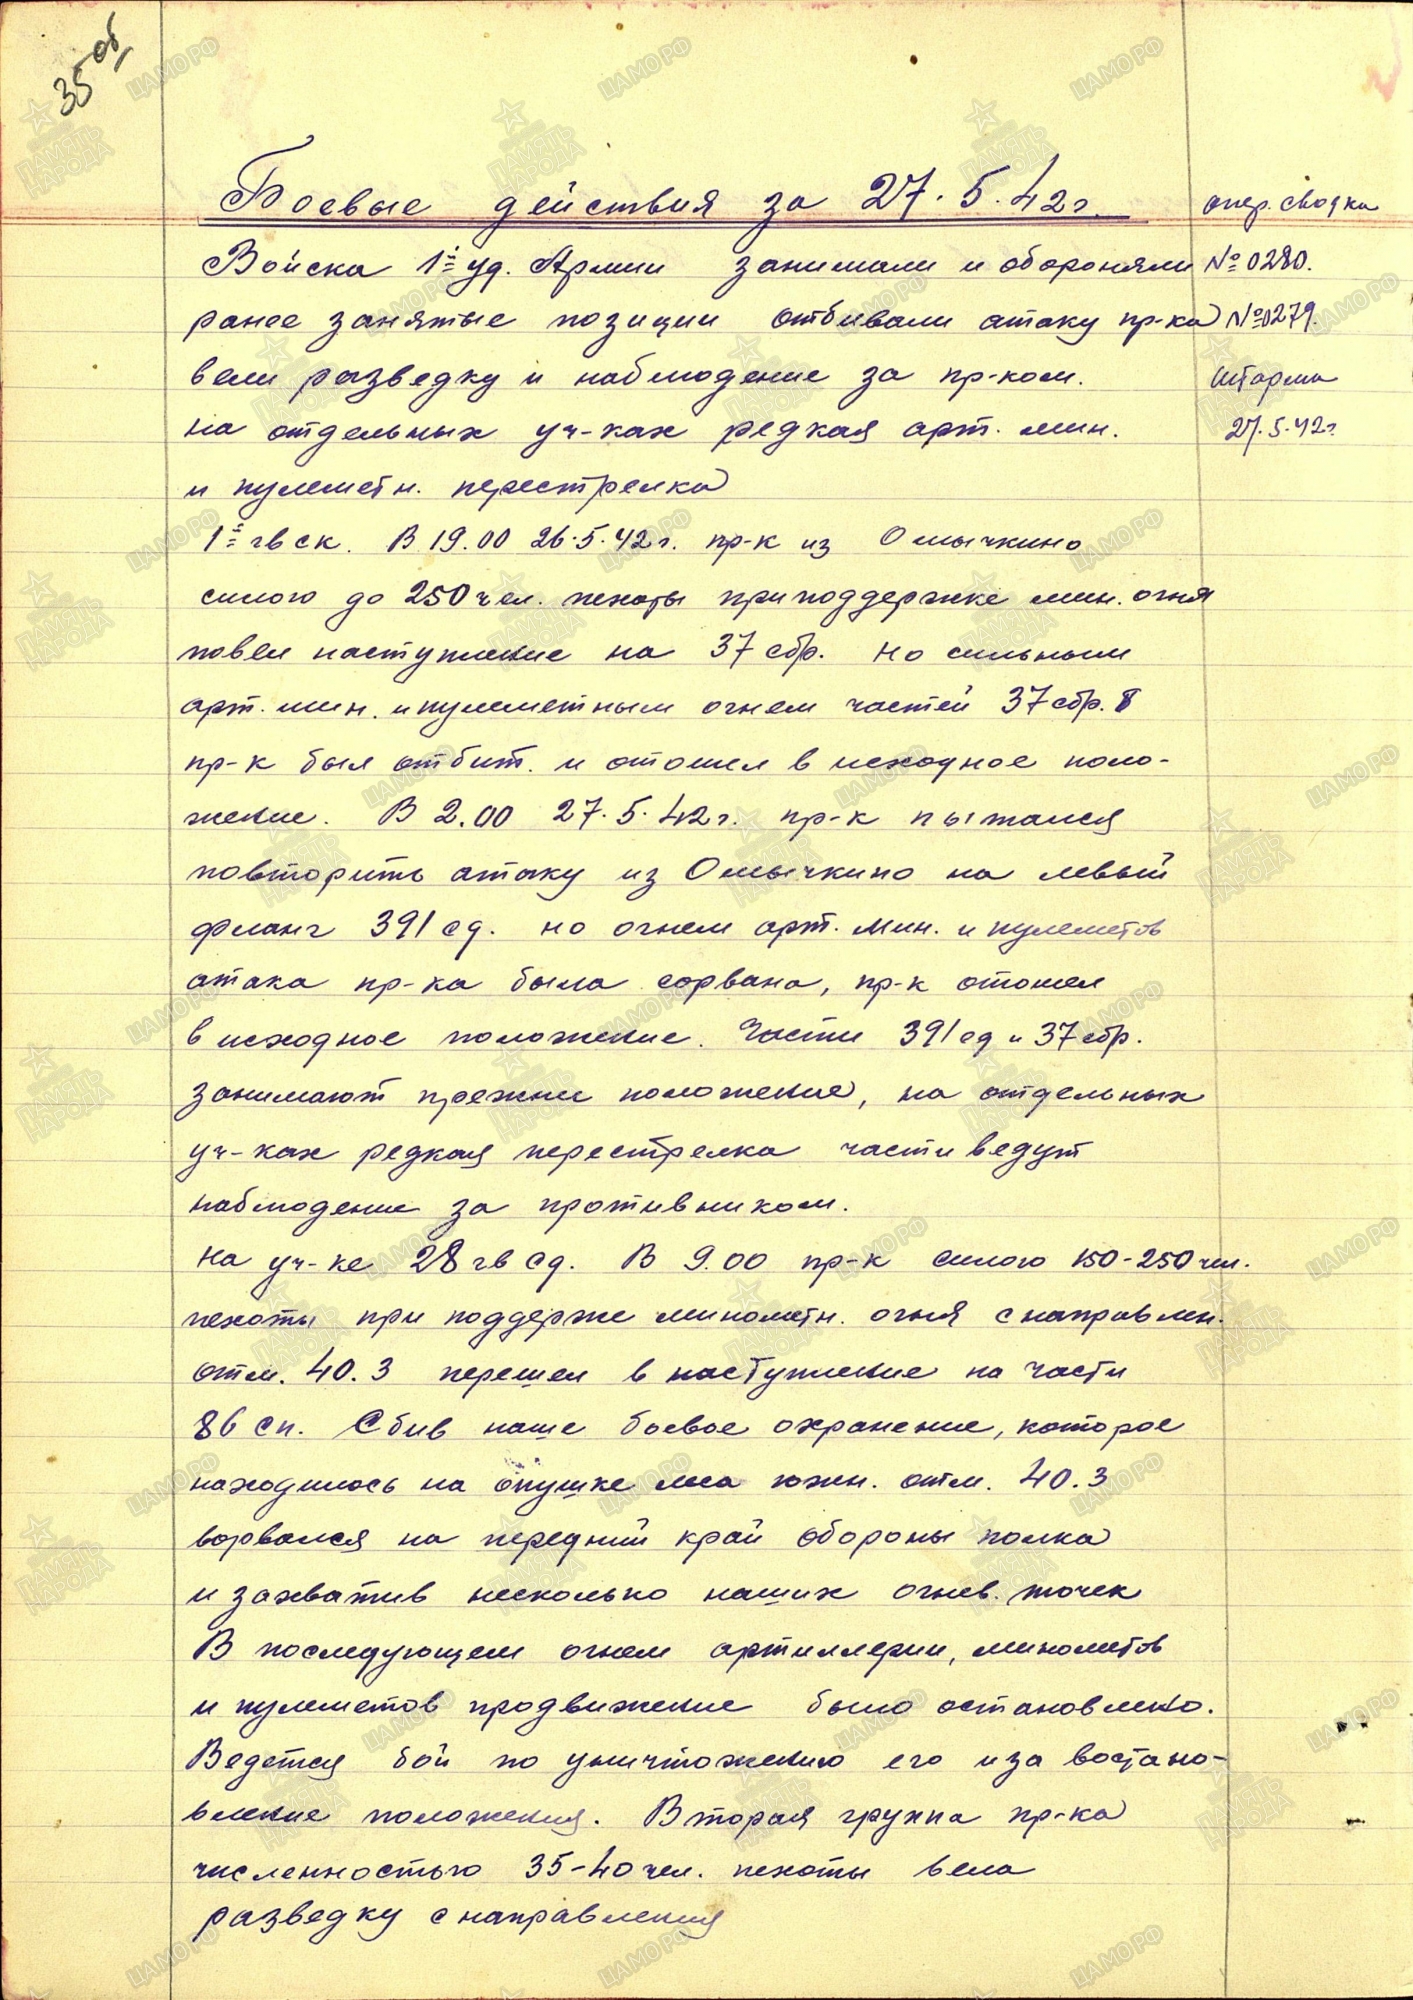 35 об
Боевые действия за 27.5.42г.
опер. сводка
Войска 1й уд. Армии занимали и обороняли
№ 0280.
ранее занятые позиции отбивали атаку пр-ка
№ 0279.
вели разведку и наблюдение за пр-ком.
Штарма
на отдельных уч-ках редкая арт. мин.
27.5.42г.
и пулеметн. перестрелка
1й гв ск. В 19.00 26.5.42г. пр-к из Омычкино
силою до 250 чел. пехоты при поддержке мин. огня
повел наступление на 37 сбр. но сильным
арт. мин. и пулеметным огнем частей 37 сбр.
пр-к был отбит. и отошел в исходное поло-
жение. В 2.00 27.5.42г. пр-к пытался
повторить атаку из Омычкино на левый
фланг 391 сд. но огнем арт. мин. и пулеметов
атака пр-ка была сорвана, пр-к отошел
в исходное положение. Части 391 сд и 37 сбр.
занимают прежние положение, на отдельных
уч-ках редкая перестрелка части ведут
наблюдение за противником.
На уч-ке 28 гв сд. В 9.00 пр-к силою 150-250 чел.
пехоты при поддерже минометн. огня с направлен.
отм. 40.3 перешел в наступление на части
86 сп. Сбив наше боевое охранение, которое
находилось на опушке леса южн. отм. 40.3
ворвался на передний край обороны полка
и захватив несколько наших огнев. точек
В последующем огнем артиллерии, минометов
и пулеметов продвижение было остановлено.
Ведется бой по уничтожению его и за востано-
вление положения. Вторая группа пр-ка
численностью 35-40 чел. пехоты вела
разведку с направления
ЦАМО РФ
ПАМЯТЬ НАРОДА